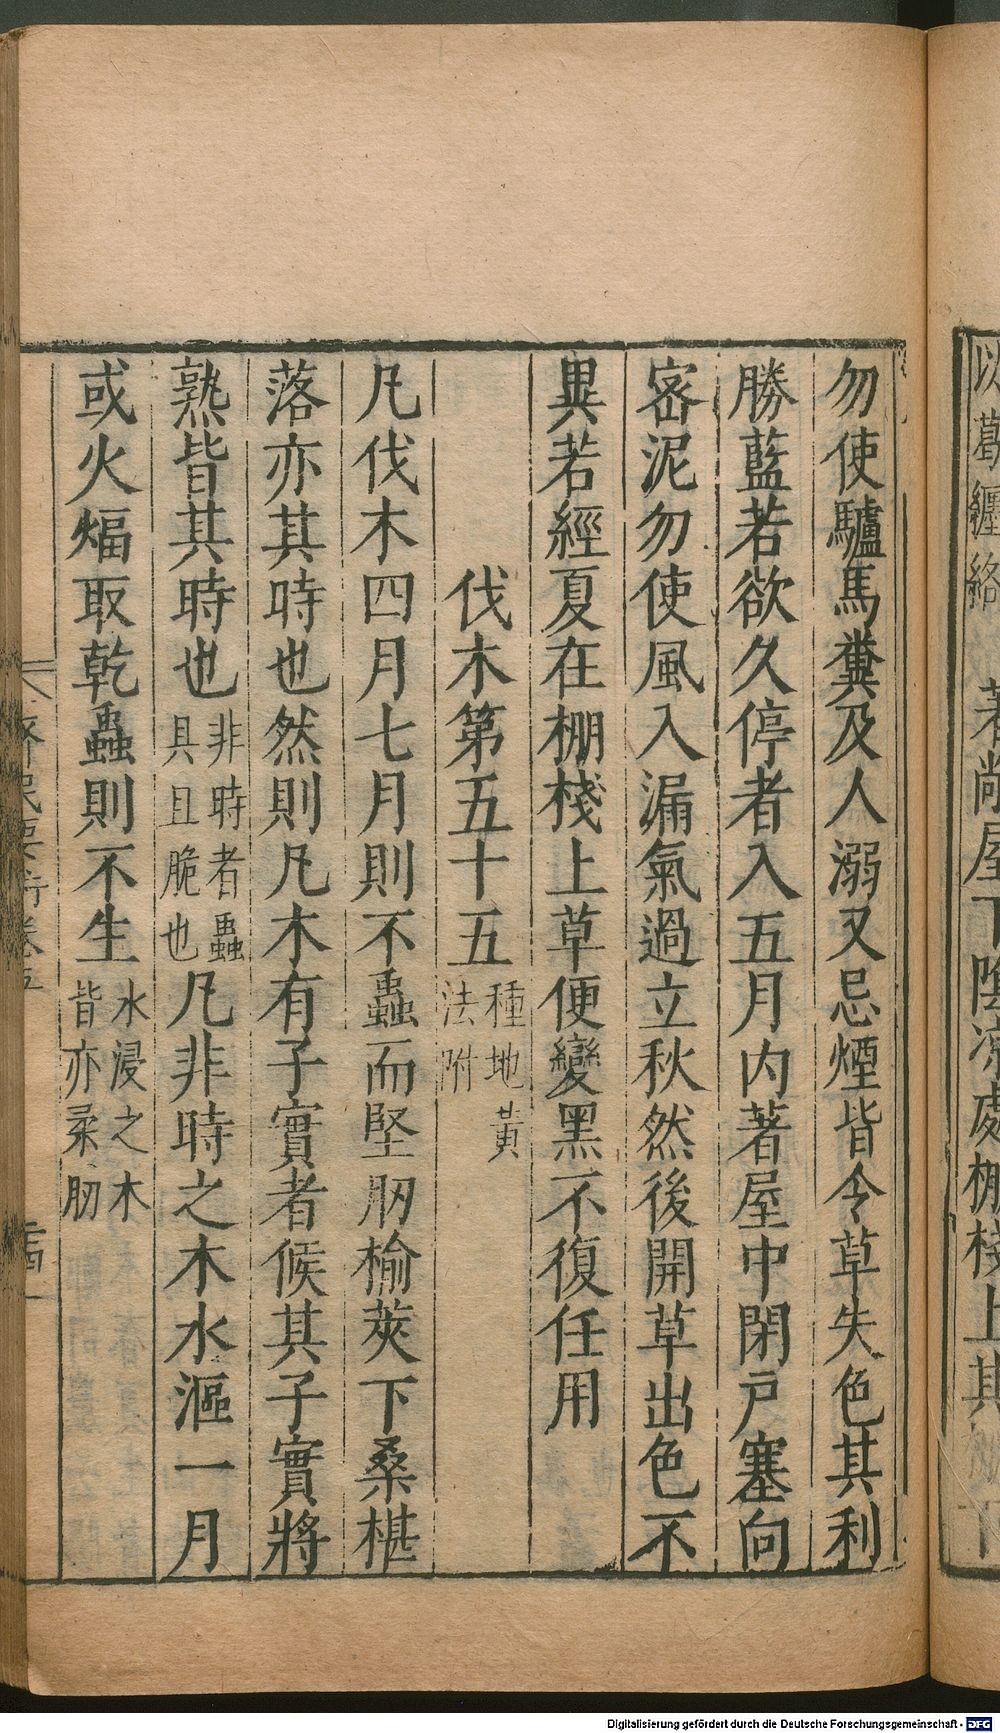 勿使驢馬糞及人溺又忌煙皆令草失色其利
勝藍若欲久停者入五月内著屋中閉戸塞向
宻泥勿使風入漏氣過立秋然後開草出色不
異若經夏在棚棧上草便變黑不復任用
伐木第五十五種地黃法附
凡伐木四月七月則不蟲而堅肕榆莢下桑椹
落亦其時也然則凡木有子實者候其子實將
熟皆其時也非時者蟲具且脆也凡非時之木水漚一月
或火煏取乾蟲則不生水浸之木皆亦柔肕
齊民要術卷五
Digitalisierung gefördert durch die Deutsche Forschungsgemeinschaft - DFG